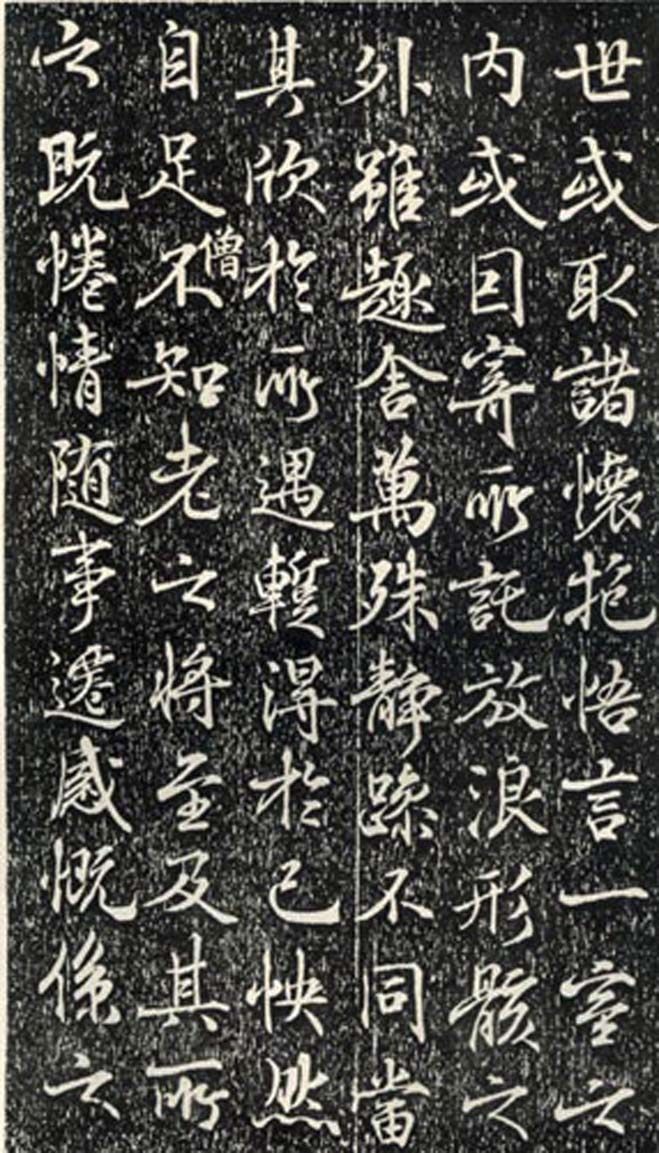 世或取諸懷抱悟言一室之
内或因寄所託放浪形骸之
外雖趣舍萬殊静躁不同當
其欣於所遇蹔得於己怏然
自足不知老之将至及其所
之既惓情随事遷感慨係之
僧